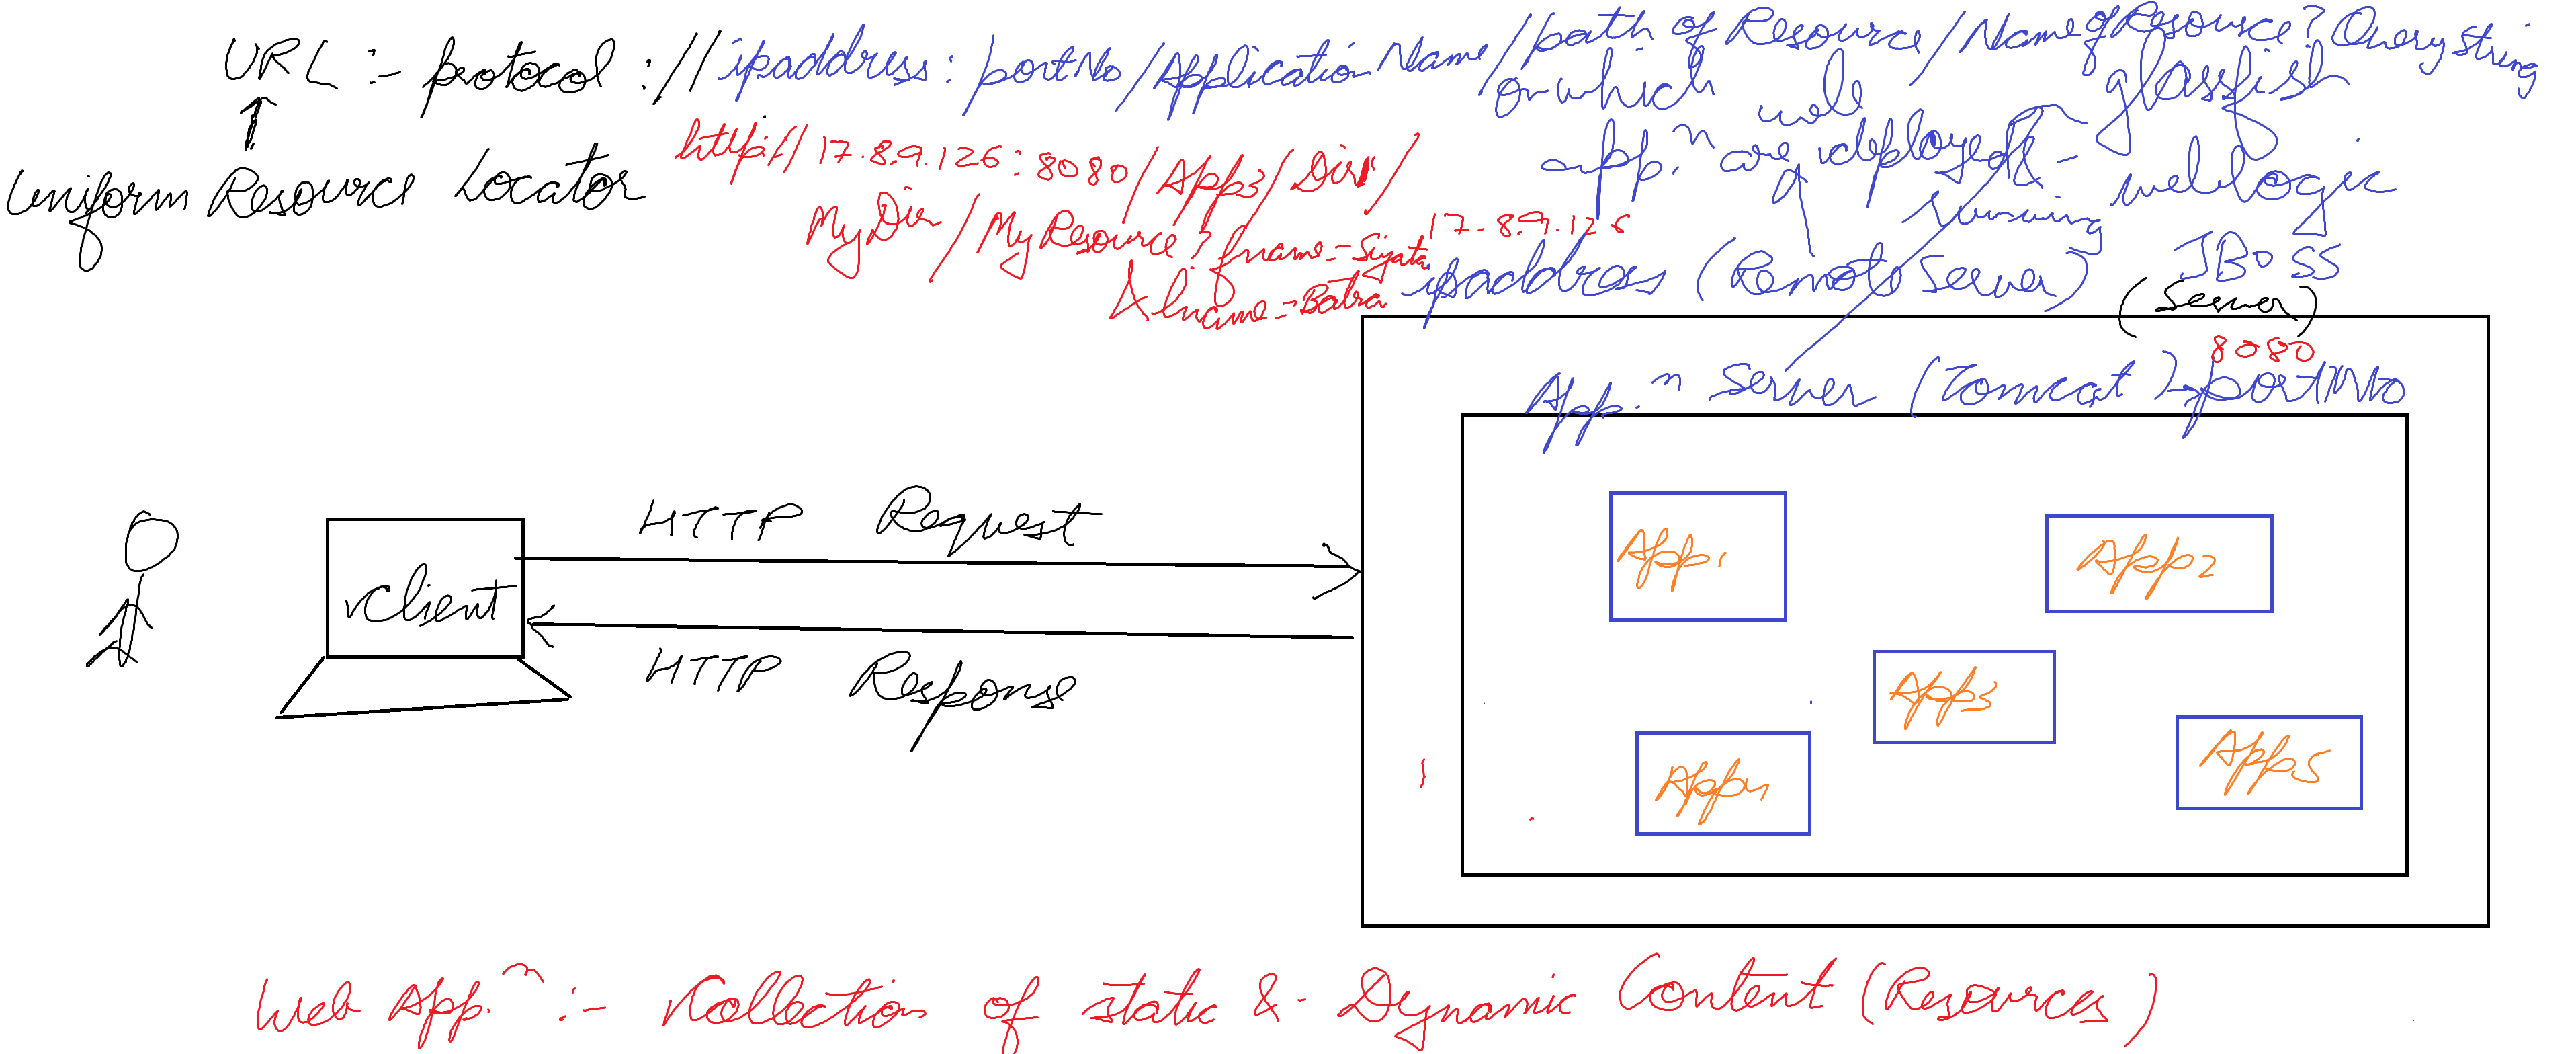 URL :- protocol ://ipaddress: portNo/Application Name/path of Resource/Name of Resource? Query String
Uniform Resource Locator
http://17.8.9.126:8080/App3/Dir1/
MyDir/MyResource? fname=Sujata
&lname=Batra
on which web
app.n are deployed & running
glassfish
weblogic
JBOSS
17.8.9.126
ipaddress (Remote Server)
(Server)
8080
App.n Server (Tomcat) → port No
HTTP Request
client
HTTP Response
App1
App2
App3
App4
App5
Web App.n :- Collection of static & Dynamic Content (Resources)